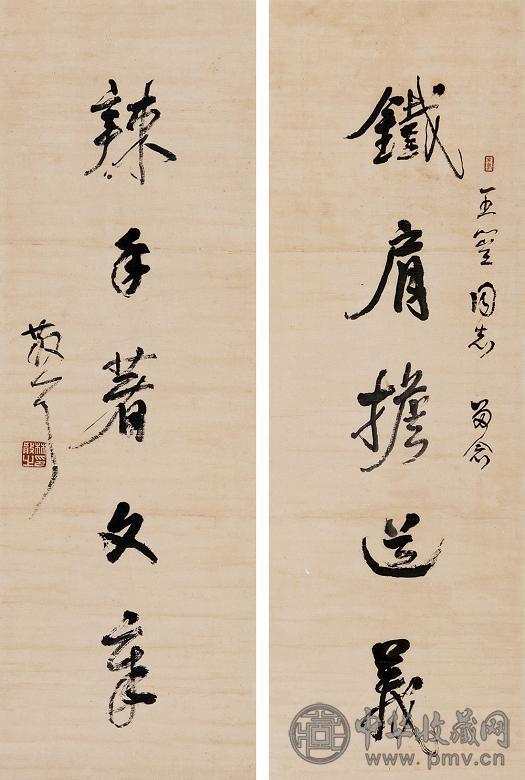 王豈同志 留念
鐵肩擔道義
辣手著文章
散耳
中华收藏网
www.pmv.cn